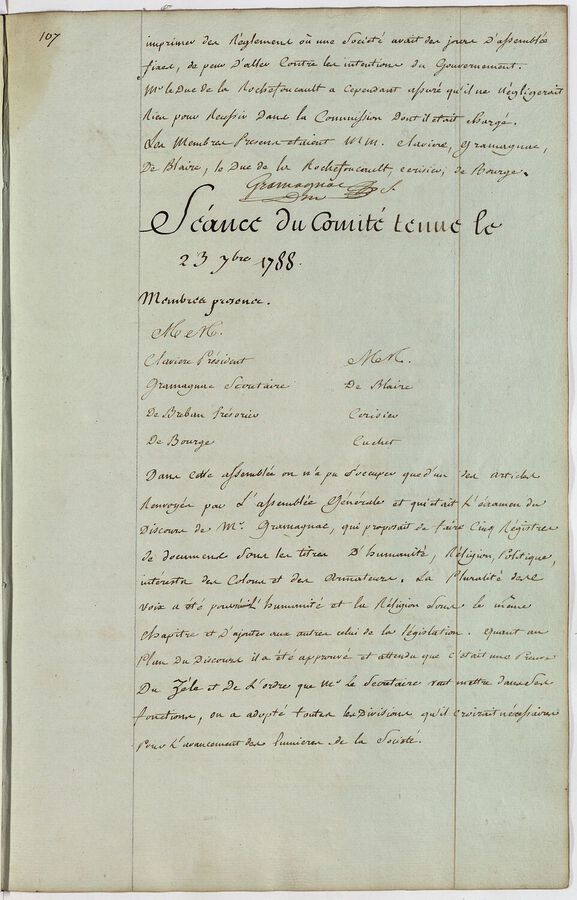 107
imprimer des Réglemens où une Société avait des jours d'assemblée
fixes, de peur d'aller Contre les intentions du Gouvernement.
Mr. le Duc de la Rochefoucault a cependant assuré qu'il ne Négligerait
Rien pour Reussir Dans la Commission Dont il etait Chargé.
Les Membres Presens etaient MM. Claviere, Gramagnac,
De Blaire, le Duc de la Rochefoucault, cerisier, de Bourge.
Gramagnac
S.
Séance du Comité tenue le
23 7bre 1788.
Membres présens.
M M.
Claviere Président
M M.
Gramagnac Secretaire
De Blaire
De Breban trésorier
Cerisier
De Bourge
Cuchet
Dans cette assemblée on n'a pu s'occuper que d'un des articles
Renvoyés par L'assemblée Générale et qui était L'éxamen du
Discours de Mr. Gramagnac, qui proposait de faire Cinq Registres
de documens Sous les titres D'humanité, Réligion, Politique,
intérests des Colons et des Armateurs. La Pluralité des
voix a été pour L'humanité et la Réligion Sous le même
Chapitre et D'ajouter aux autres celui de la législation. Quant au
Plan Du Discours il a été approuvé et attendu que c'était une Preuve
Du Zéle et de L'ordre que Mr. le Secretaire veut mettre dans Ses
fonctions, on a adopté toutes les Divisions qu'il croirait nécéssaires
Pour L'avancement des lumieres de la Société.